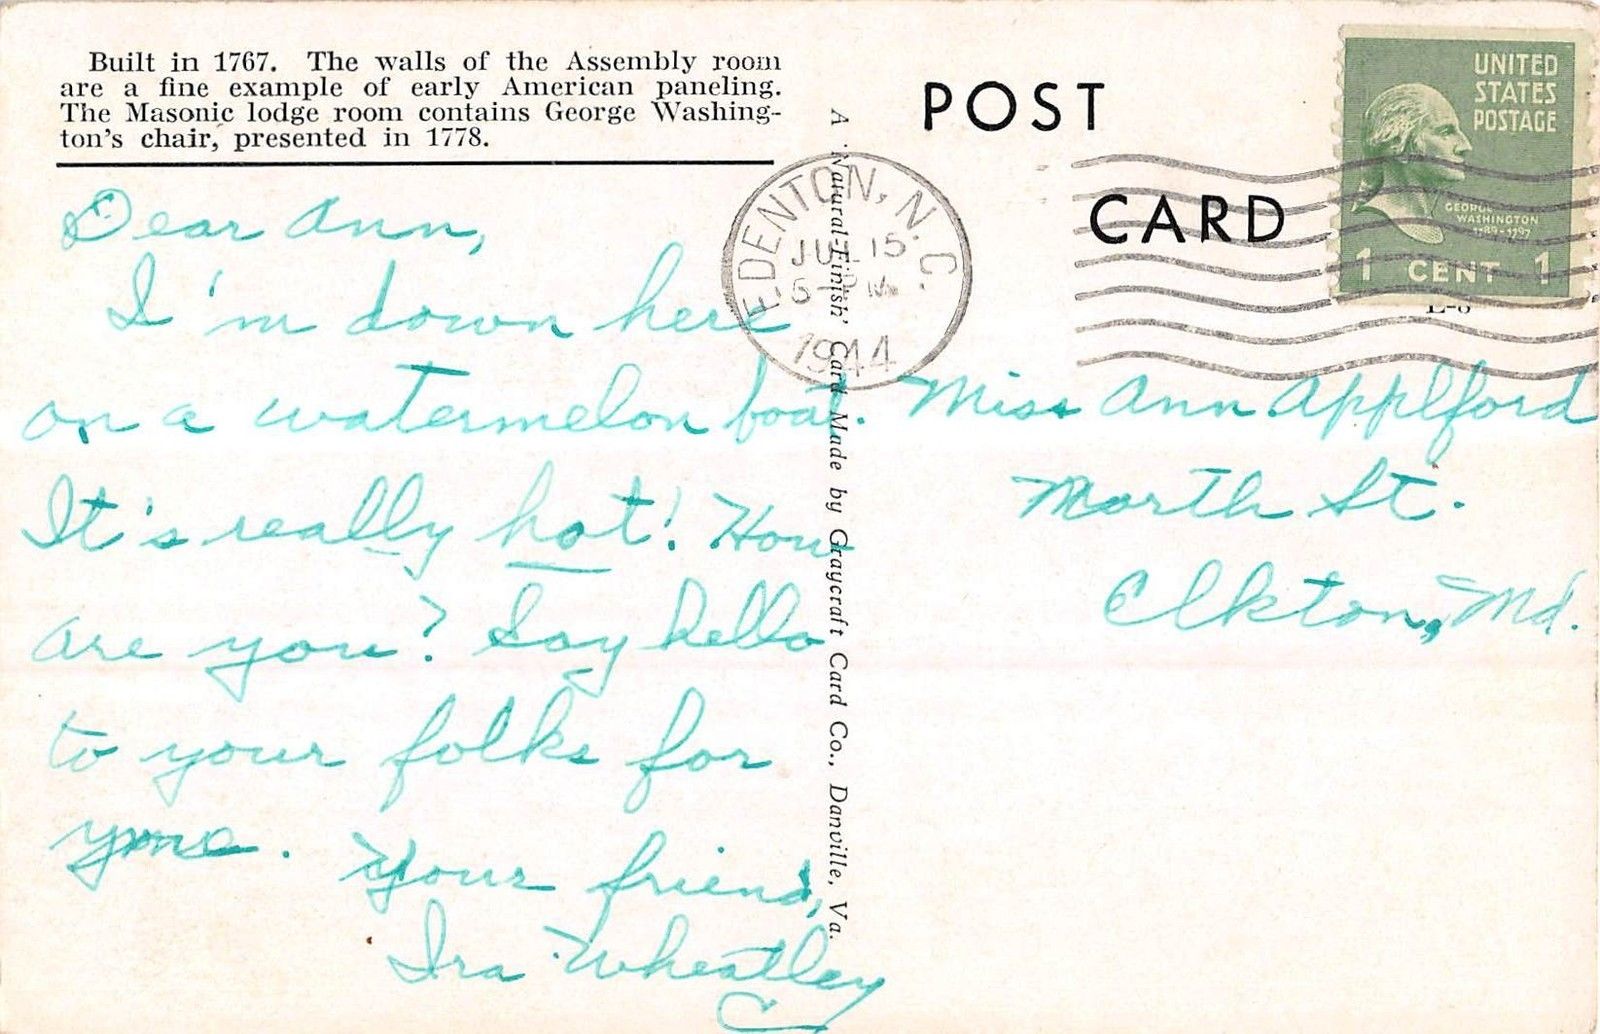 Built in 1767. The walls of the Assembly room
are a fine example of early American paneling.
The Masonic lodge room contains George Washing-
ton's chair, presented in 1778.
Dear Ann,
I'm down here
on a watermelon boat.
It's really hot! How
are you? Say hello
to your folks for
me.
Your friend,
Ira Wheatley
A 'Natural-Finish' Card Made by Graycraft Card Co., Danville, Va.
POST
CARD
EDENTON, N.C.
JUL 15
PM
1944
UNITED
STATES
POSTAGE
GEORGE
WASHINGTON
1789-1797
1 CENT 1
Miss Ann Applford
North St.
Elkton, Md.